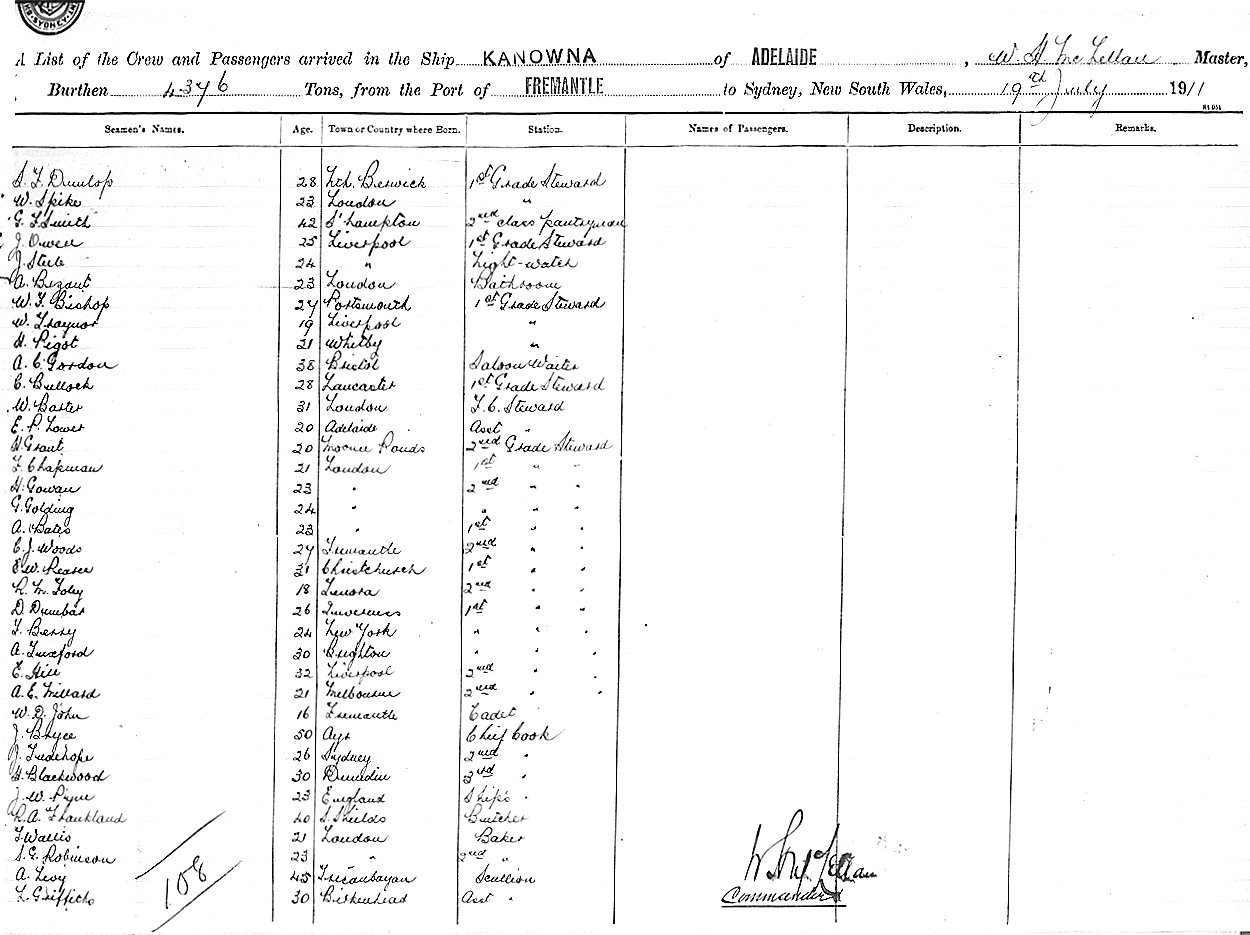 SYDNEY
A List of the Crew and Passengers arrived in the Ship KANOWNA of ADELAIDE, W. H. McLellan Master,
Burthen 4376 Tons, from the Port of FREMANTLE to Sydney, New South Wales, 19th July 1911
Seamen's Names. Age. Town or Country where Born. Station. Names of Passengers. Description. Remarks.
S. F. Dunlop 28 Nth. Berwick 1st Grade Steward
W. Spike 23 London "
G. F. Smith 42 S'hampton 2nd class pantryman
J. Owen 25 Liverpool 1st Grade Steward
J. Steele 24 " Night-watch
A. Bezant 23 London Bathroom
W. F. Bishop 27 Portsmouth 1st Grade Steward
W. Traynor 19 Liverpool "
H. Pigot 21 Whitby "
A. C. Gordon 38 Bristol Saloon Waiter
C. Bullock 28 Lancaster 1st Grade Steward
W. Baxter 31 London F. C. Steward
E. P. Lower 20 Adelaide Asst "
H. Grant 20 Moonee Ponds 2nd Grade Steward
F. Chapman 21 London 1st " "
H. Gowan 23 " 2nd " "
G. Golding 24 " " " "
A. Bates 23 " 1st " "
C. J. Woods 27 Fremantle 2nd " "
E. W. Pearce 31 Christchurch 1st " "
R. M. Foley 18 2nd " "
D. Dunbar 26 Inverness 1st " "
F. Berry 24 New York " " "
A. Luxford 30 Brighton " " "
E. Hill 32 Liverpool 2nd " "
A. E. Millard 21 Melbourne 2nd " "
W. D. John 16 Fremantle Cadet
J. Bryce 50 Ayr Chief Cook
J. Tudehope 26 Sydney 2nd "
H. Blackwood 30 Dunedin 3rd "
J. W. Pyne 23 England Ship's "
R. A. Frankland 40 S. Shields Butcher
F. Wallis 21 London Baker
S. G. Robinson 23 " 2nd "
A. Levy 45 Scullion
L. Griffiths 30 Birkenhead Asst "
108
W. H. McLellan
Commander